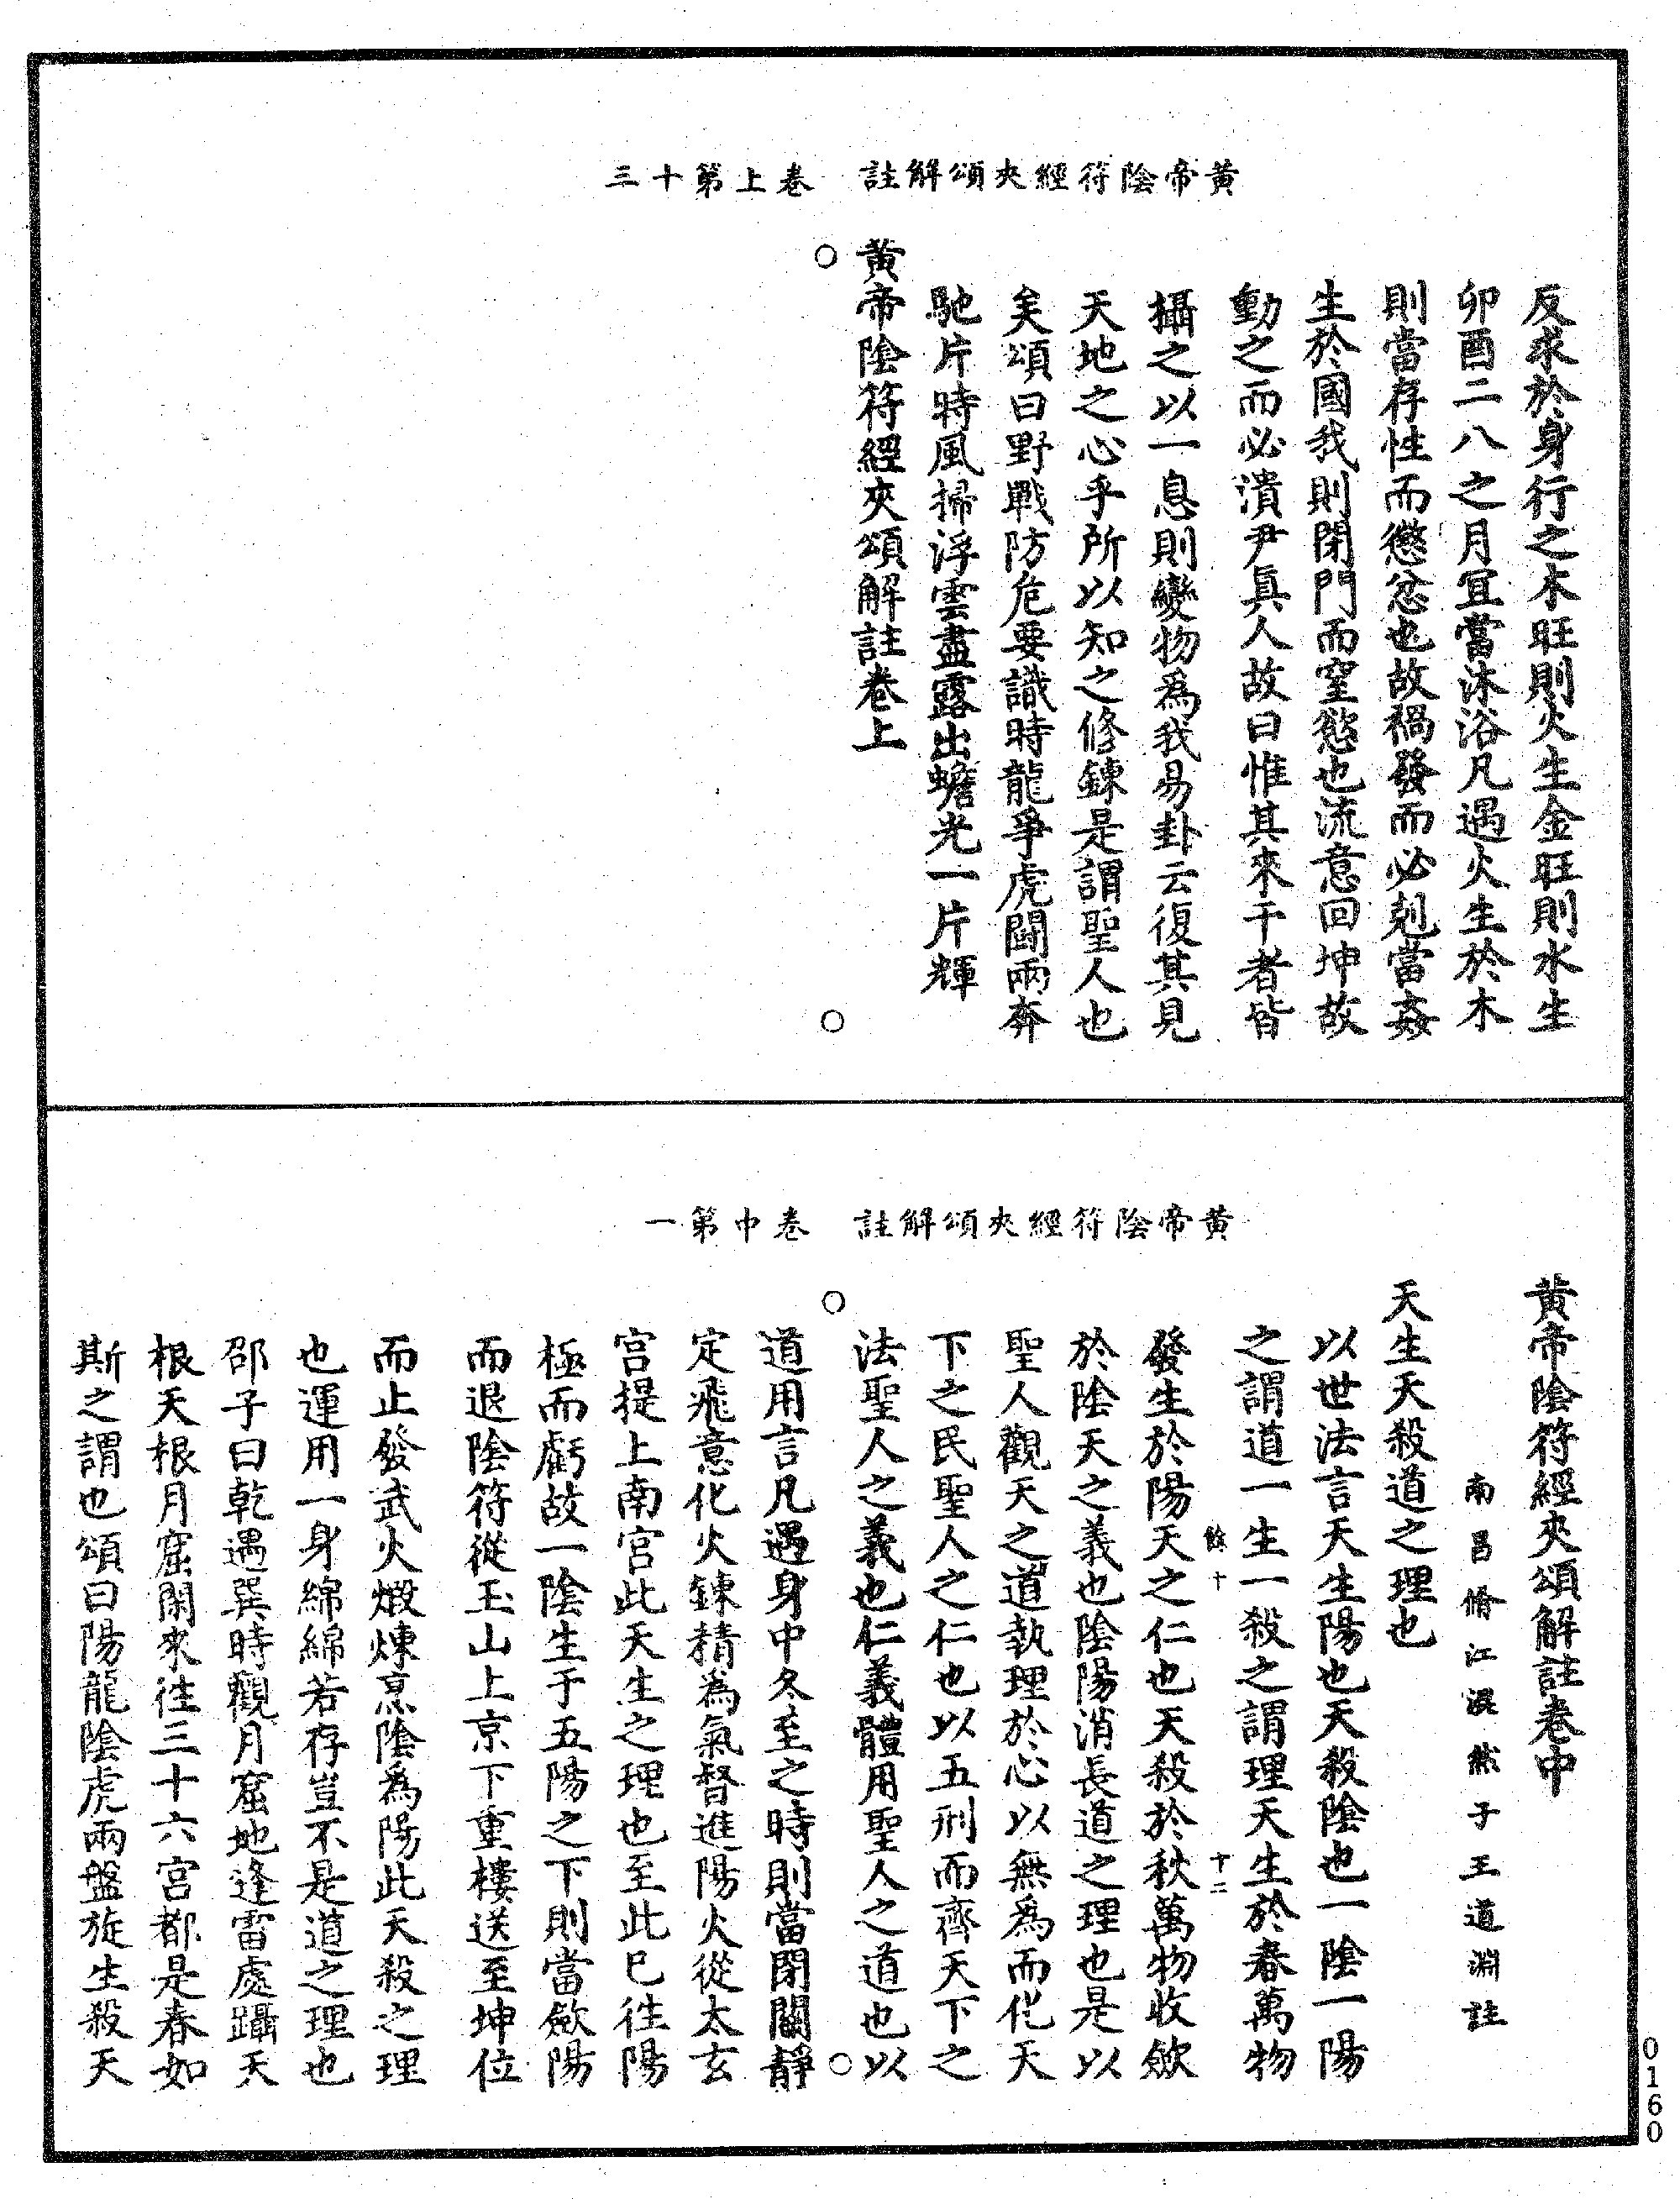 黃帝陰符經夾頌解註　卷上第十三
反求於身行之木旺則火生金旺則水生
卯酉二八之月宜當沐浴凡遇火生於木
則當存性而懲忿也故禍發而必剋當姦
生於國我則閉門而窒慾也流意回坤故
動之而必潰尹眞人故曰惟其來干者皆
攝之以一息則變物爲我易卦云復其見
天地之心乎所以知之修鍊是謂聖人也
矣頌曰野戰防危要識時龍爭虎鬪兩奔
馳片時風掃浮雲盡露出蟾光一片輝
黃帝陰符經夾頌解註卷上
黃帝陰符經夾頌解註　卷中第一
黃帝陰符經夾頌解註卷中
南昌脩江混然子王道淵註
天生天殺道之理也
以世法言天生陽也天殺陰也一陰一陽
之謂道一生一殺之謂理天生於春萬物
餘十　十二
發生於陽天之仁也天殺於秋萬物收歛
於陰天之義也陰陽消長道之理也是以
聖人觀天之道執理於心以無爲而化天
下之民聖人之仁也以五刑而齊天下之
法聖人之義也仁義體用聖人之道也以
道用言凡遇身中冬至之時則當閉關靜
定飛意化火鍊精爲氣督進陽火從太玄
宮提上南宮此天生之理也至此巳往陽
極而虧故一陰生于五陽之下則當歛陽
而退陰符從玉山上京下重樓送至坤位
而止發武火煅煉烹陰爲陽此天殺之理
也運用一身綿綿若存豈不是道之理也
邵子曰乾遇巽時觀月窟地逢雷處躡天
根天根月窟閑來往三十六宮都是春如
斯之謂也頌曰陽龍陰虎兩盤旋生殺天
0160